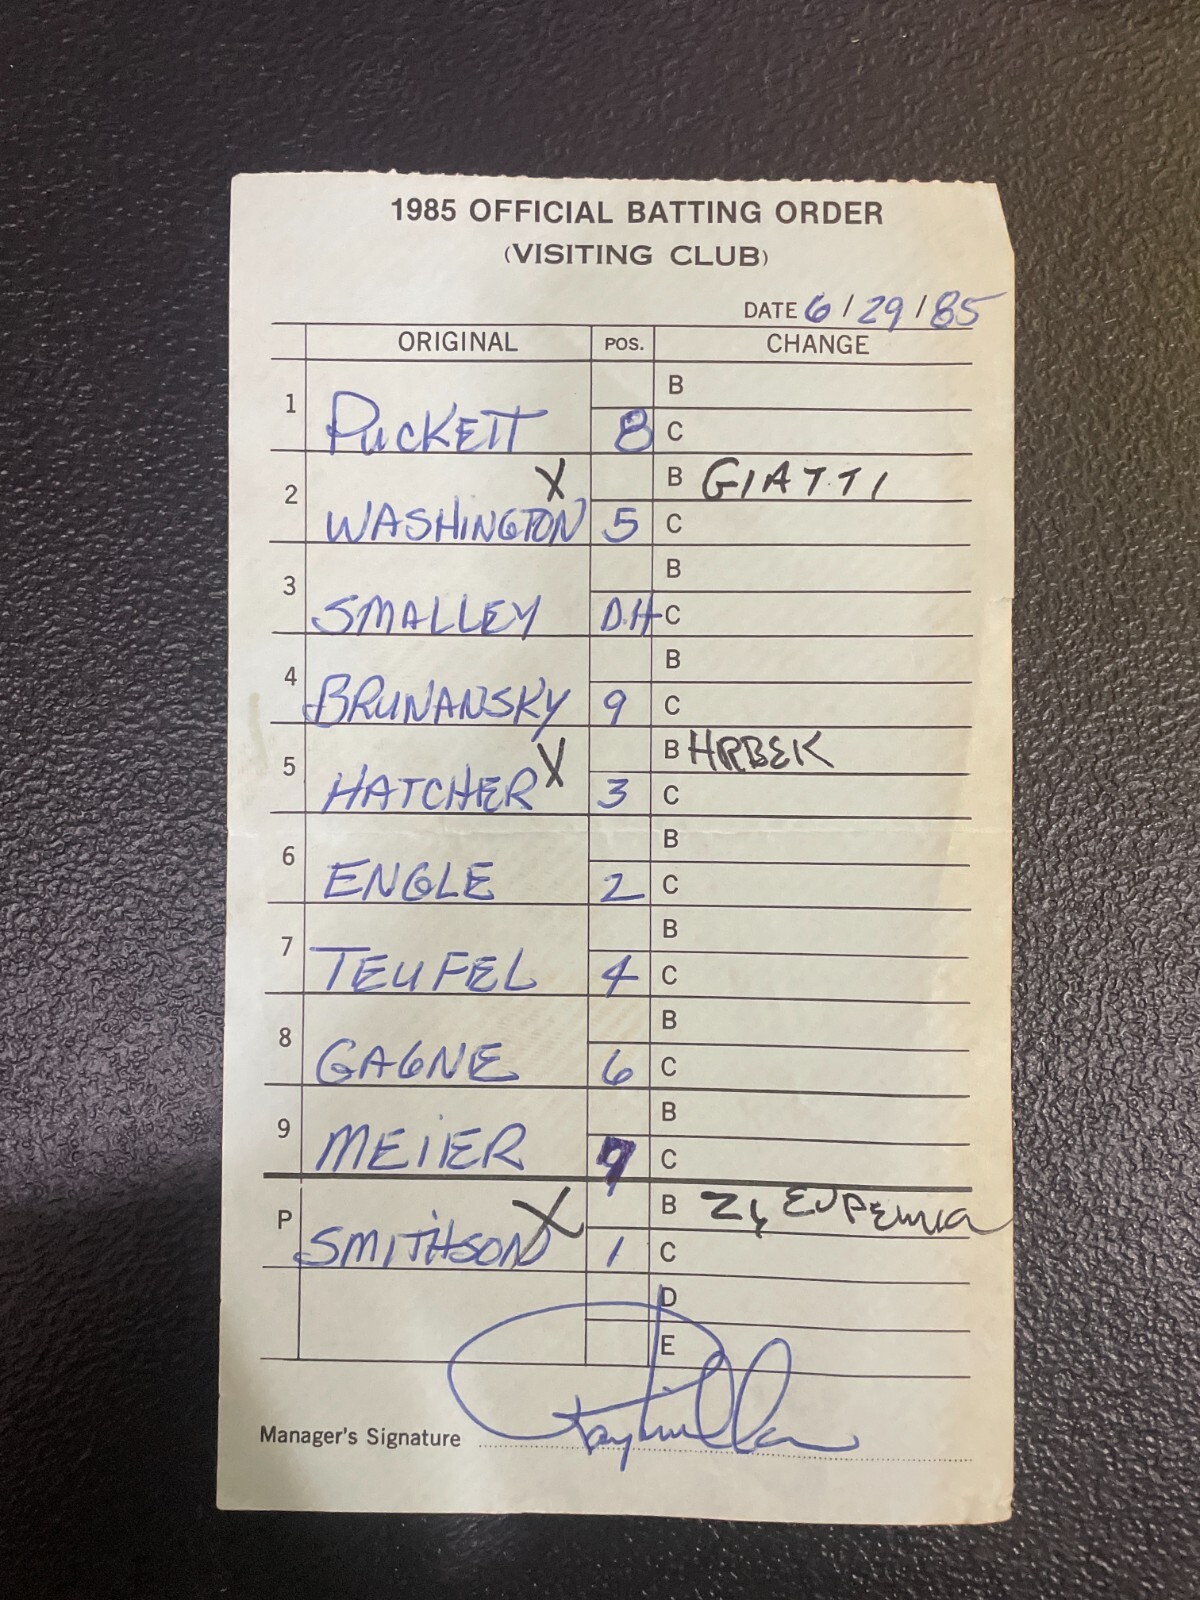 1985 OFFICIAL BATTING ORDER
(VISITING CLUB)
DATE 6/29/85
ORIGINAL POS. CHANGE
B
1 PUCKETT 8 C
X B GIATTI
2 WASHINGTON 5 C
B
3 SMALLEY D.H C
B
4 BRUNANSKY 9 C
X B HRBEK
5 HATCHER 3 C
B
6 ENGLE 2 C
B
7 TEUFEL 4 C
B
8 GAGNE 6 C
B
9 MEIER 7 C
X B EUPEMIA
P SMITHSON 1 C
D
E
Manager's Signature Ray Miller